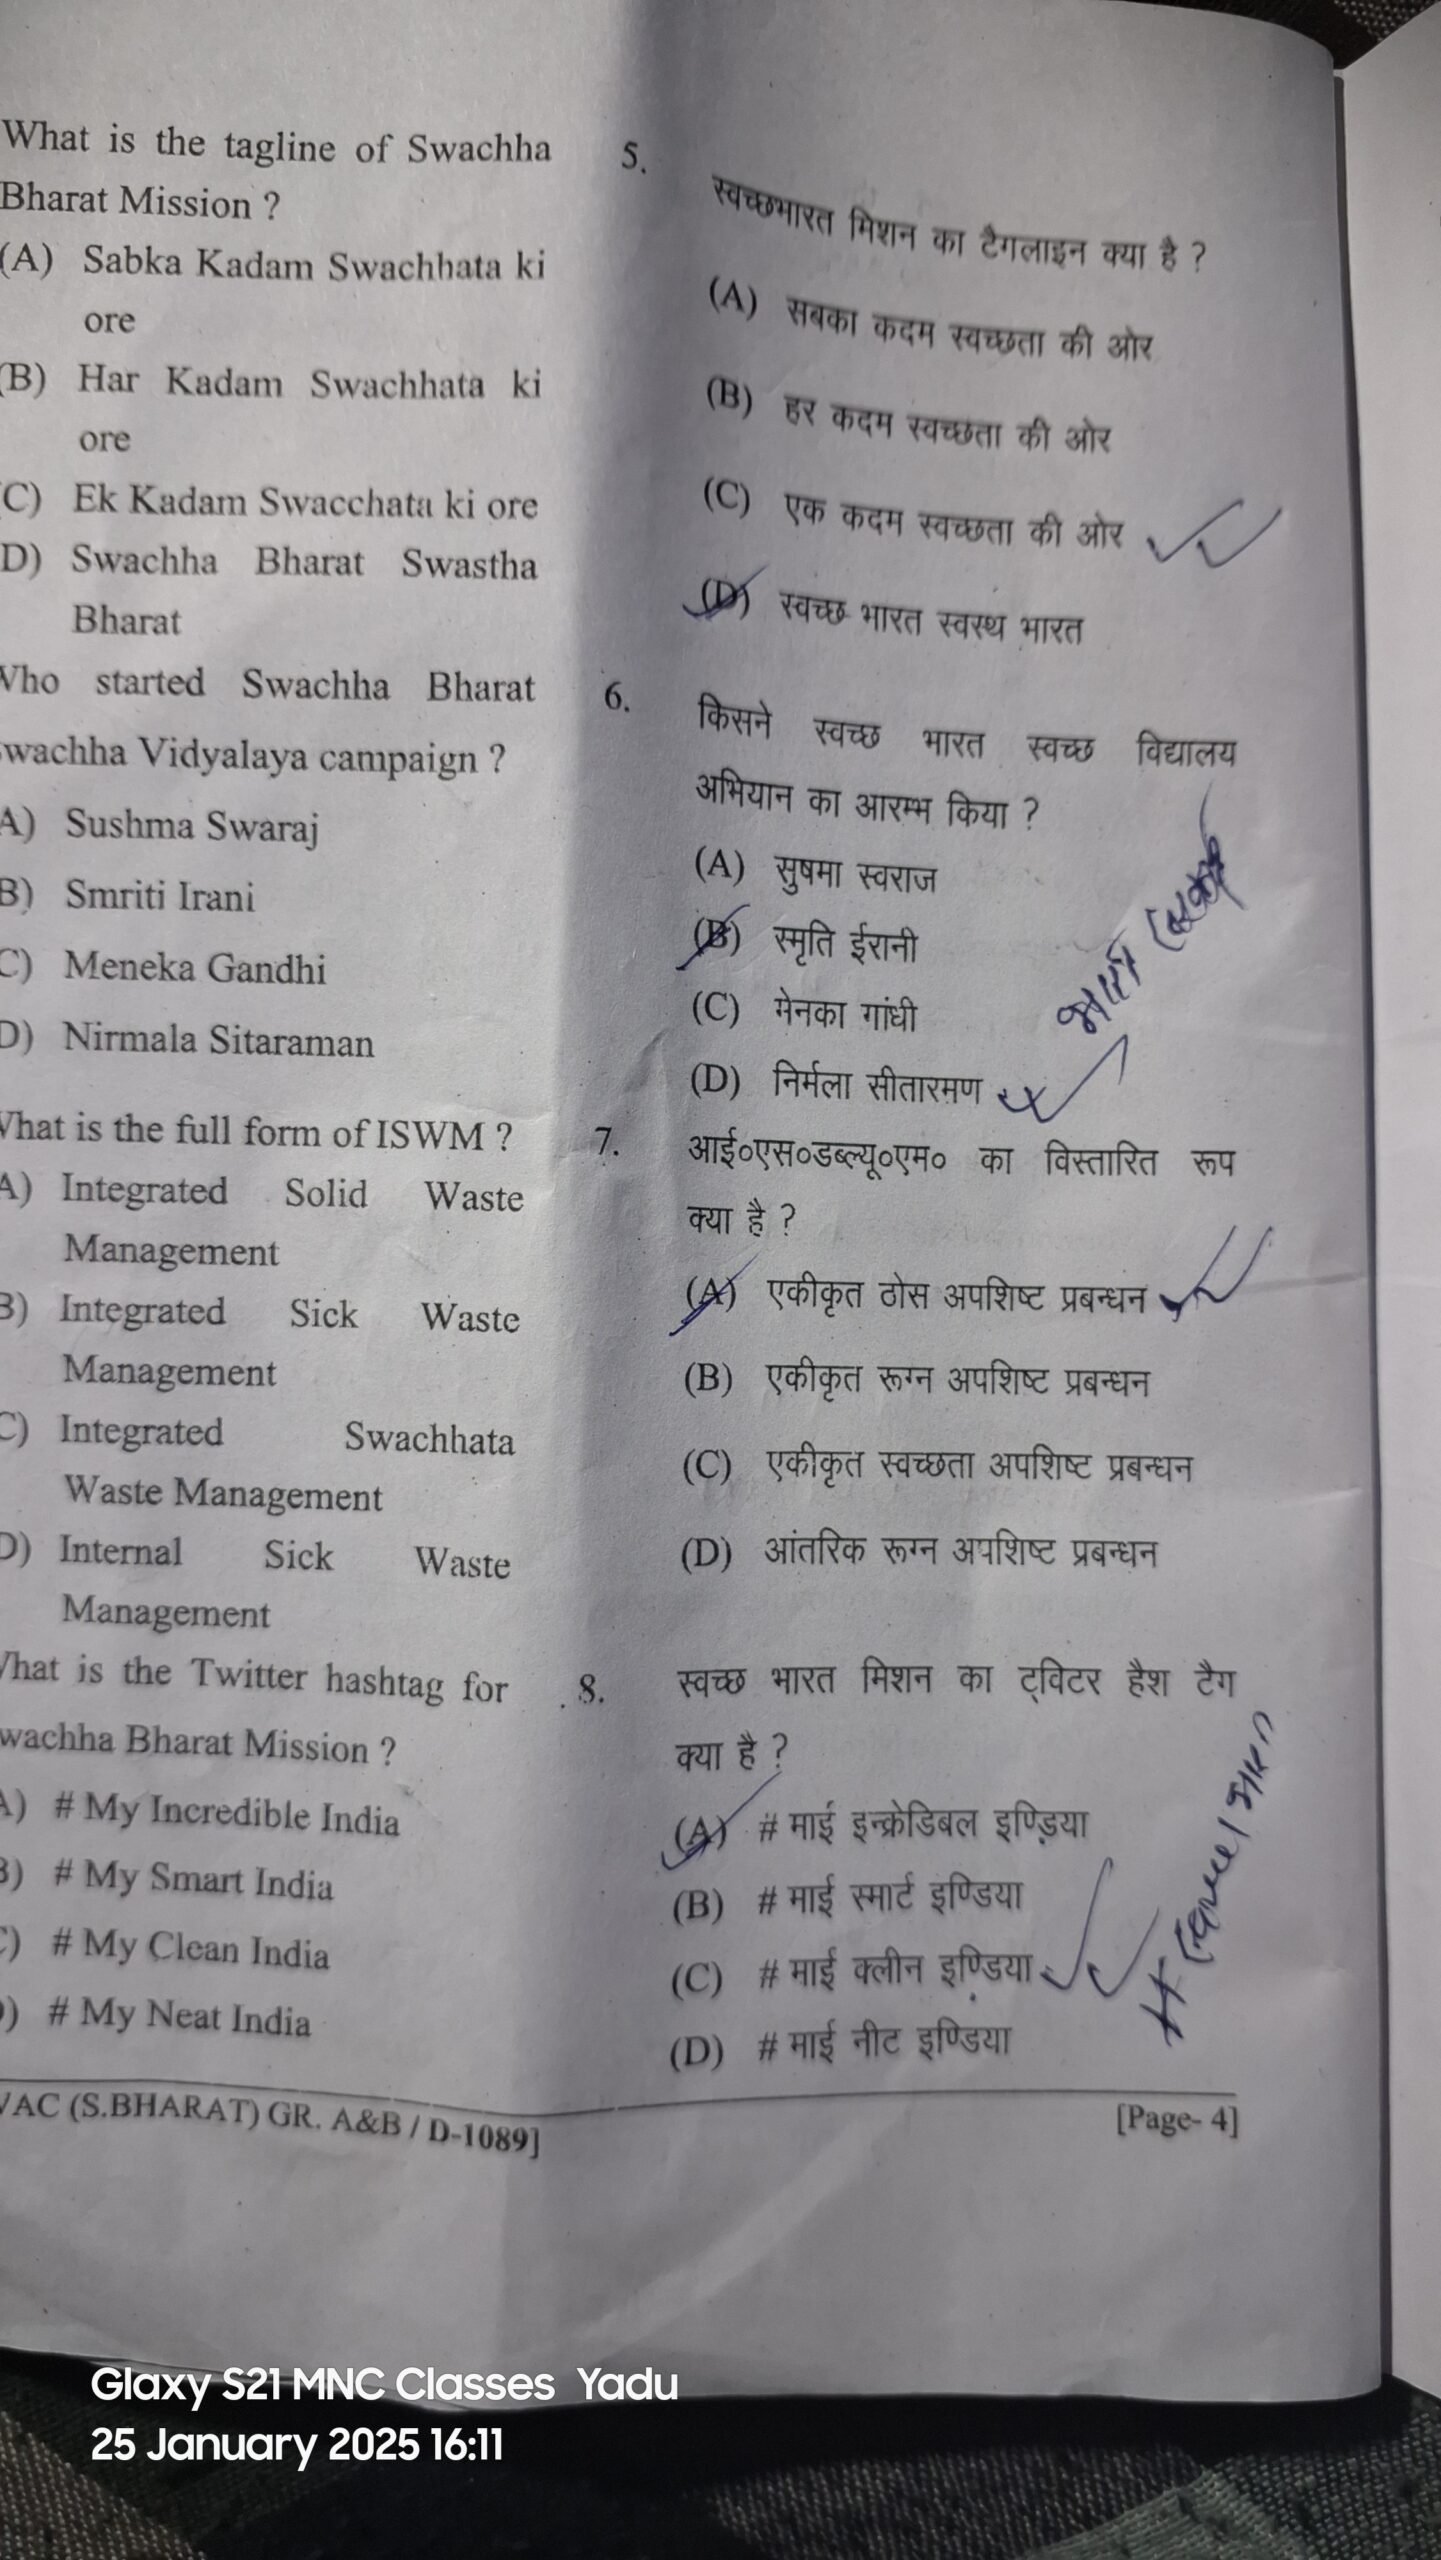 What is the tagline of Swachha
Bharat Mission ?
(A) Sabka Kadam Swachhata ki
ore
(B) Har Kadam Swachhata ki
ore
C) Ek Kadam Swacchata ki ore
D) Swachha Bharat Swastha
Bharat
Who started Swachha Bharat
wachha Vidyalaya campaign ?
A) Sushma Swaraj
B) Smriti Irani
C) Meneka Gandhi
D) Nirmala Sitaraman
What is the full form of ISWM ?
A) Integrated Solid Waste
Management
B) Integrated Sick Waste
Management
C) Integrated Swachhata
Waste Management
D) Internal Sick Waste
Management
What is the Twitter hashtag for
wachha Bharat Mission ?
A) # My Incredible India
B) # My Smart India
C) # My Clean India
D) # My Neat India
VAC (S.BHARAT) GR. A&B / D-1089]
5. स्वच्छभारत मिशन का टैगलाइन क्या है ?
(A) सबका कदम स्वच्छता की ओर
(B) हर कदम स्वच्छता की ओर
(C) एक कदम स्वच्छता की ओर
(D) स्वच्छ भारत स्वस्थ भारत
6. किसने स्वच्छ भारत स्वच्छ विद्यालय
अभियान का आरम्भ किया ?
(A) सुषमा स्वराज
(B) स्मृति ईरानी
(C) मेनका गांधी
(D) निर्मला सीतारमण
7. आई०एस०डब्ल्यू०एम० का विस्तारित रूप
क्या है ?
(A) एकीकृत ठोस अपशिष्ट प्रबन्धन
(B) एकीकृत रूग्न अपशिष्ट प्रबन्धन
(C) एकीकृत स्वच्छता अपशिष्ट प्रबन्धन
(D) आंतरिक रूग्न अपशिष्ट प्रबन्धन
8. स्वच्छ भारत मिशन का ट्विटर हैश टैग
क्या है ?
(A) # माई इन्क्रेडिबल इण्डिया
(B) # माई स्मार्ट इण्डिया
(C) # माई क्लीन इण्डिया
(D) # माई नीट इण्डिया
[Page- 4]
Glaxy S21 MNC Classes Yadu
25 January 2025 16:11